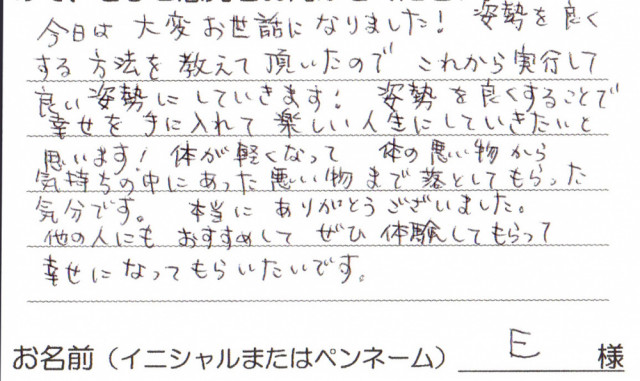 今日は 大変 お世話になりました! 姿勢を良く
する方法を 教えて 頂いたので これから実行して
良い姿勢にしていきます! 姿勢を良くすることで
幸せを手に入れて 楽しい人生にしていきたいと
思います! 体が軽くなって 体の悪い物から
気持ちの中にあった悪い物まで落としてもらった
気分です。 本当に ありがとうございました。
他の人にも おすすめして ぜひ 体験してもらって
幸せになってもらいたいです。
お名前(イニシャルまたはペンネーム) E 様